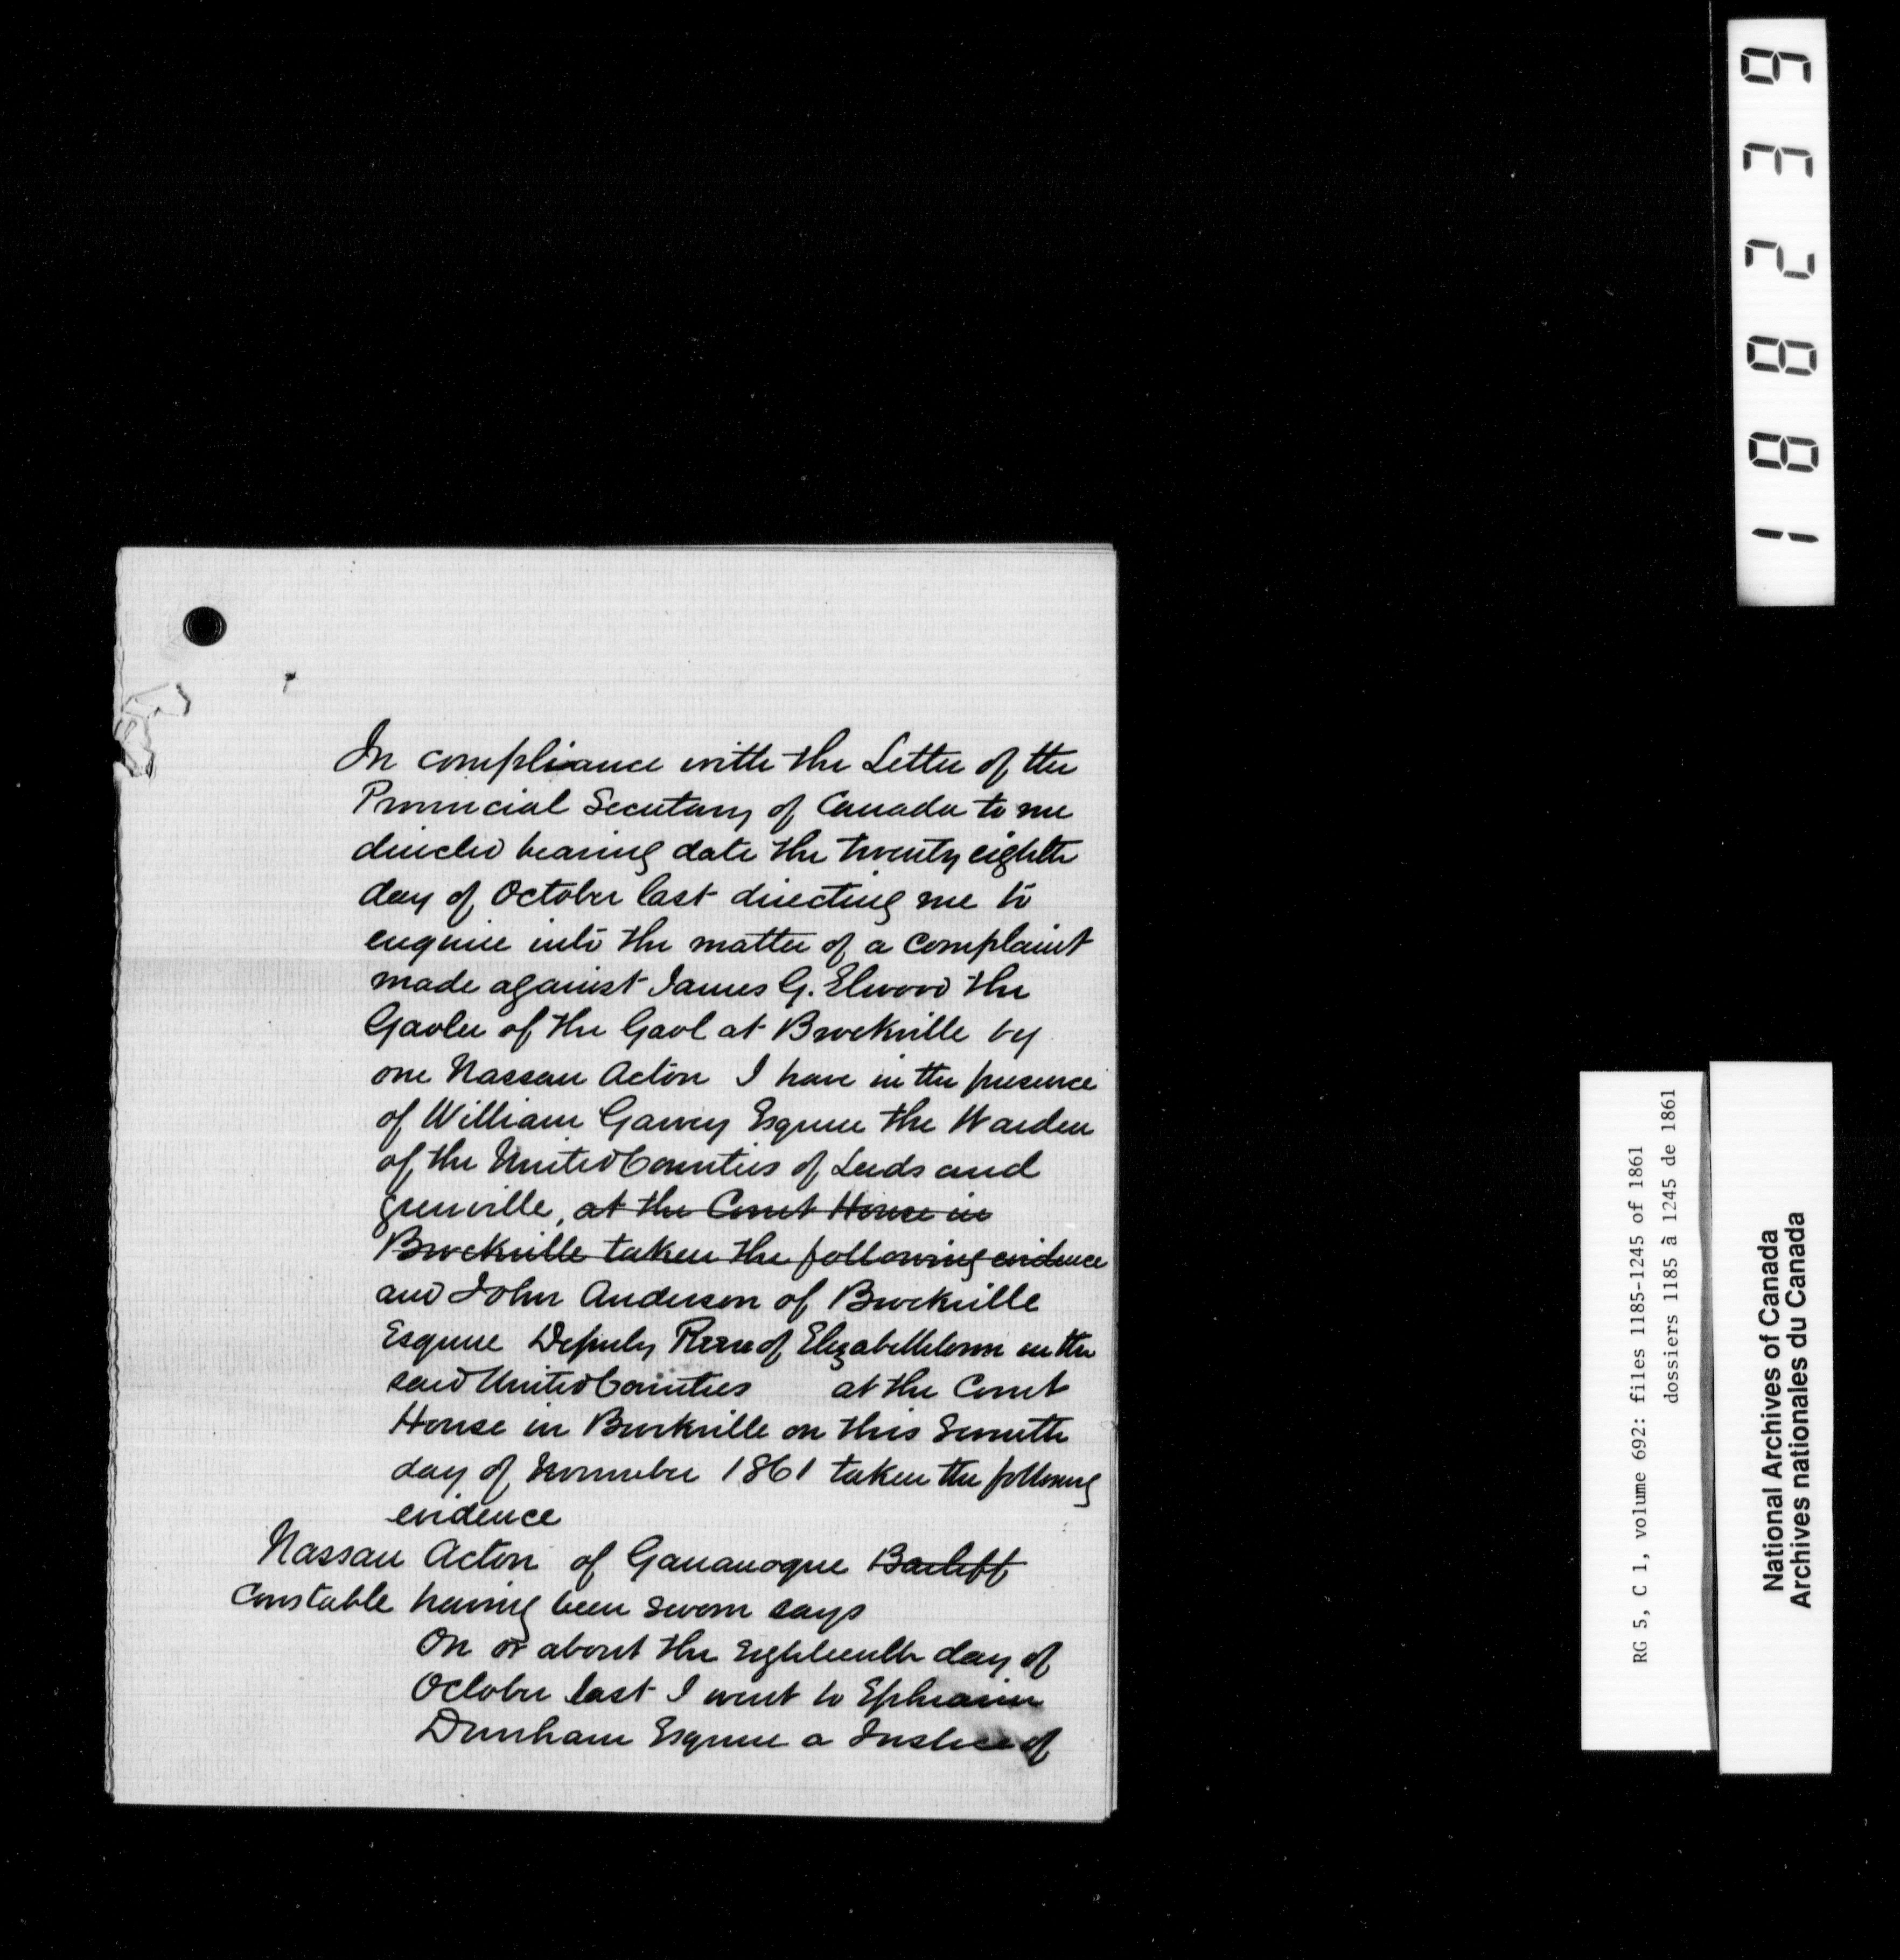 In compliance with the Letter of the
Provincial Secretary of Canada to me
directed bearing date the twenty eighth
day of October last directing me to
enquire into the matter of a complaint
made against James G. Elwood the
Gaoler of the Gaol at Brockville by
one Nassau Acton I have in the presence
of William Garvey Esquire the Warden
of the United Counties of Leeds and
Grenville, at the Court House in
Brockville taken the following evidence
and John Anderson of Brockville
Esquire Deputy Reeve of Elizabethtown in the
said United Counties at the Court
House in Brockville on this Seventh
day of November 1861 taken the following
evidence
Nassau Acton of Gananoque Bailiff
Constable having been sworn says
On or about the Eighteenth day of
October last I went to Ephraim
Dunham Esquire a Justice of
188239
RG 5, C 1, volume 692: files 1185-1245 of 1861
dossiers 1185 à 1245 de 1861
National Archives of Canada
Archives nationales du Canada